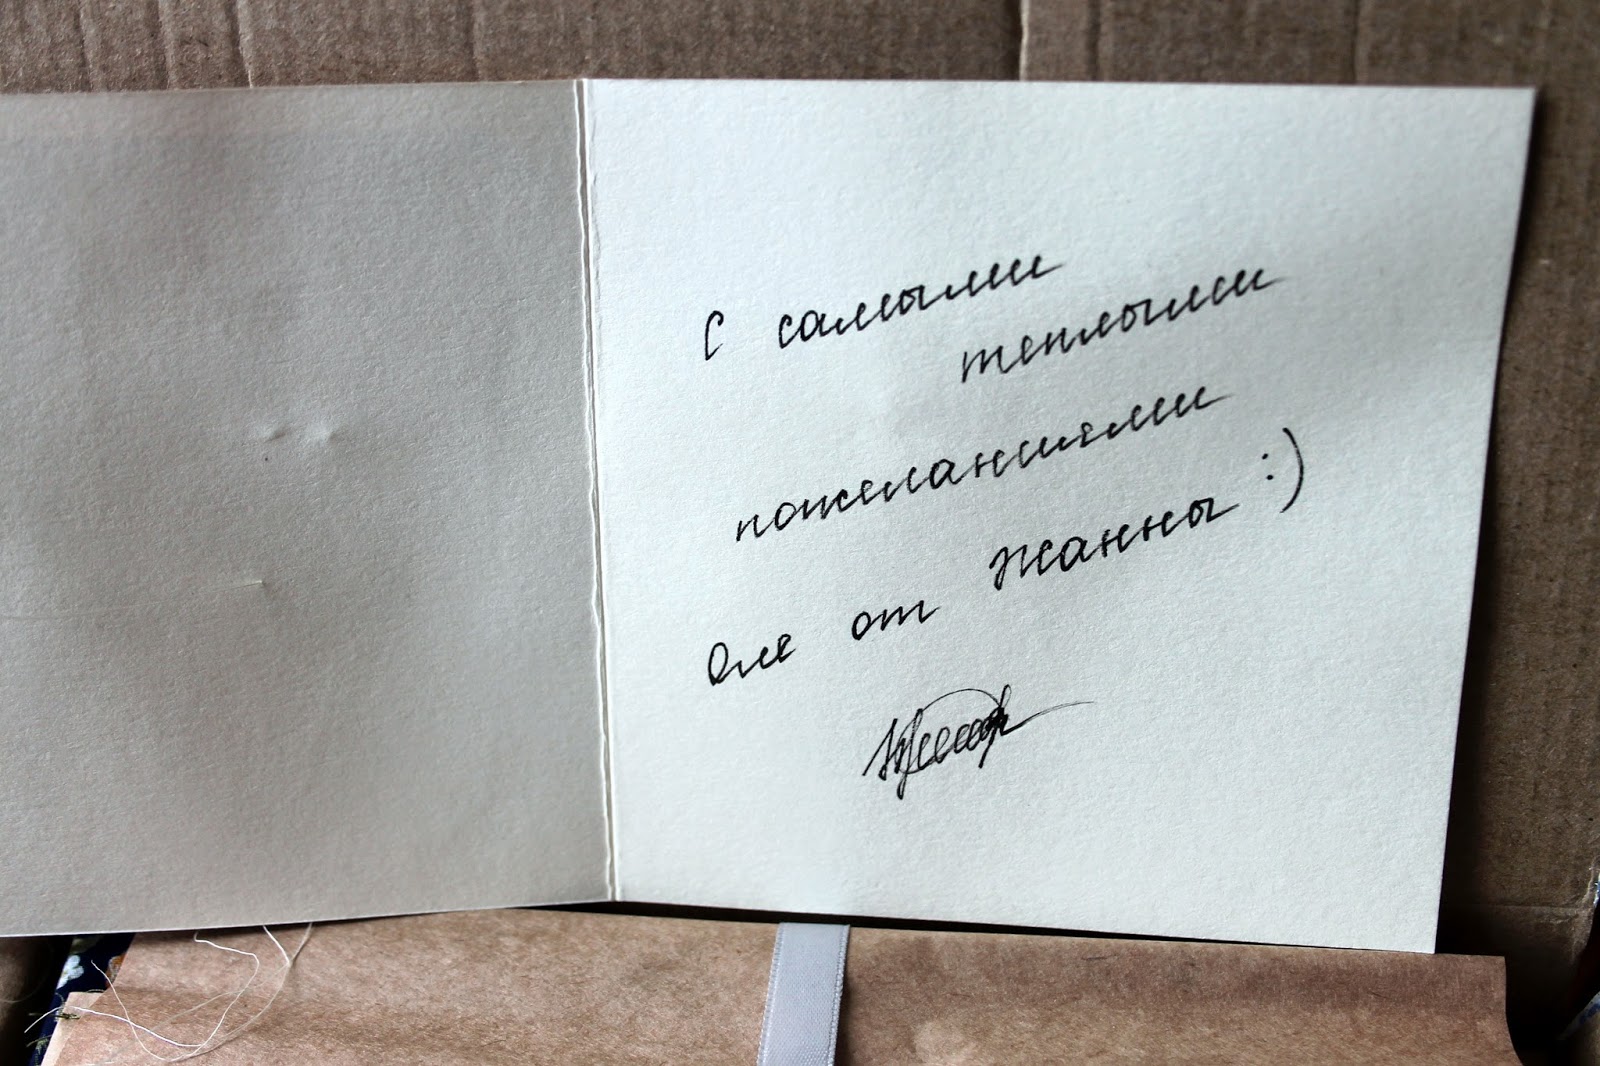 С самыми
теплыми
пожеланиями
Оле от Жанны :)